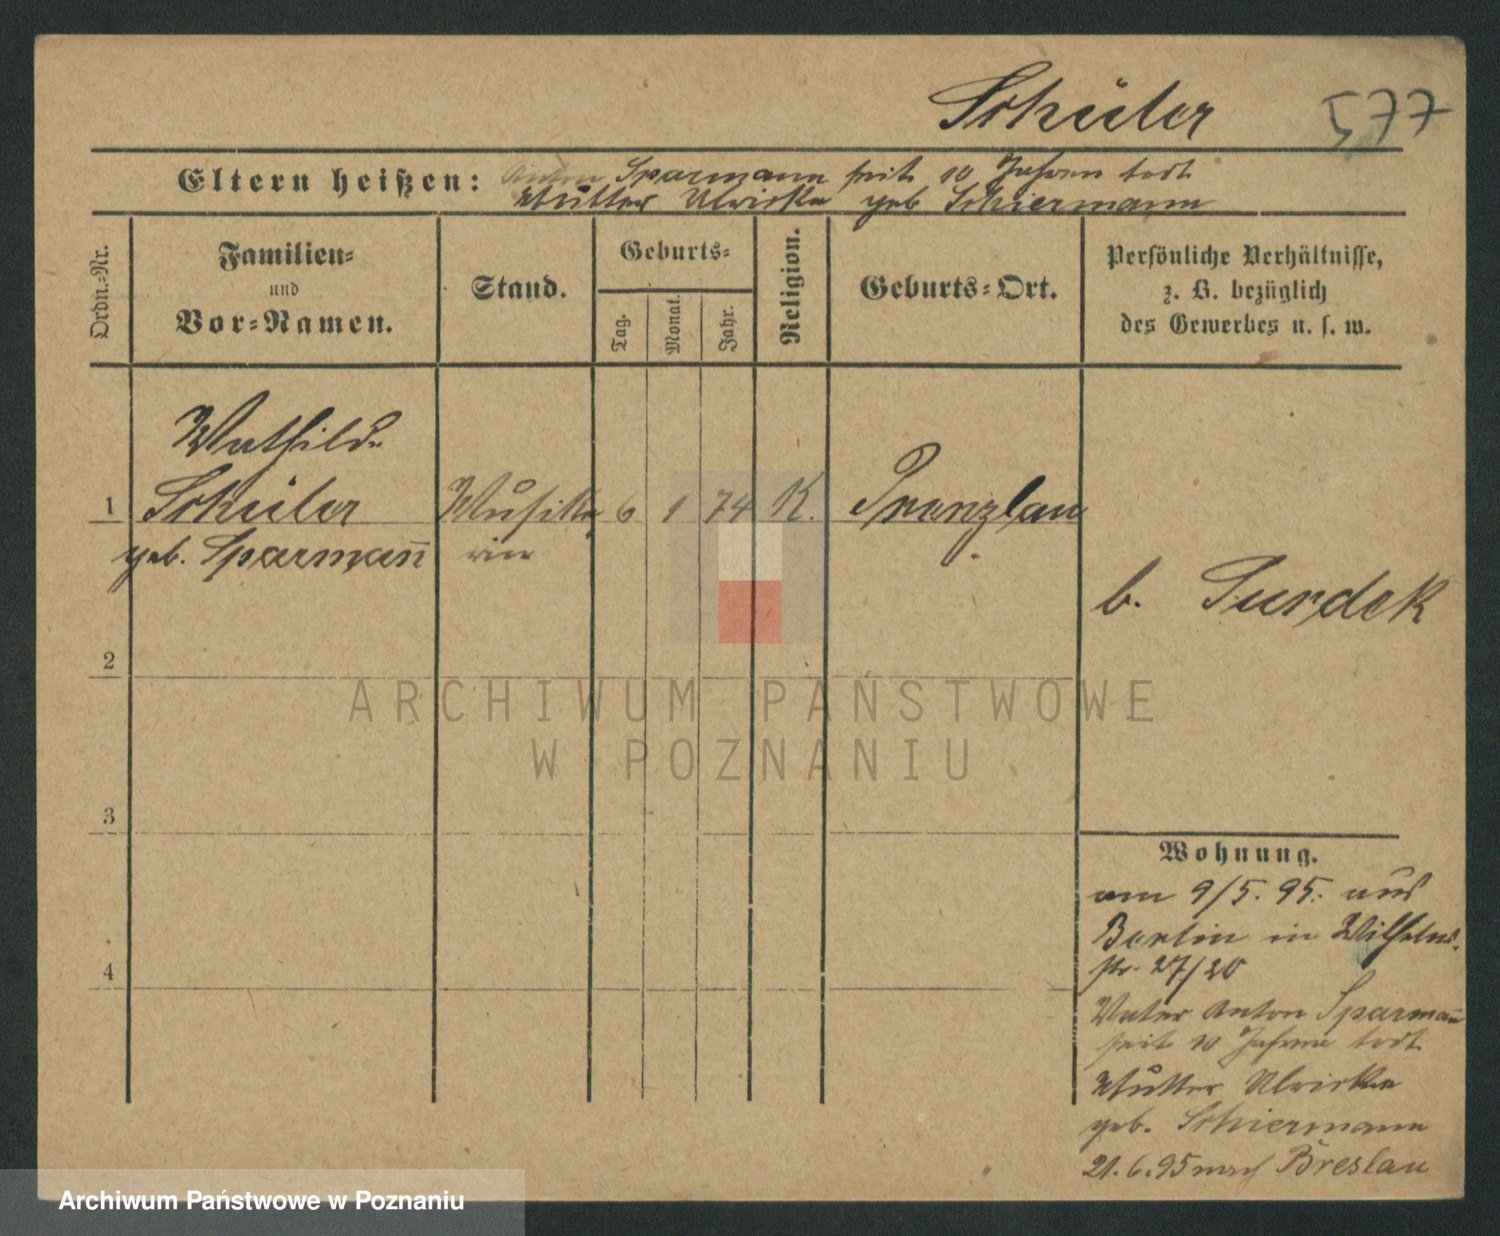 Schüler 577
Eltern heißen: Anton Sparmann seit 10 Jahren todt
Mutter Ulricke geb Schiermann
Ordn.-Nr.
Familien-
und
Vor-Namen.
Stand.
Geburts-
Tag.
Monat.
Jahr.
Religion.
Geburts-Ort.
Persönliche Verhältnisse,
z. B. bezüglich
des Gewerbes u. s. w.
Mathilde
1 Schüler Musike 6 1 74 K. Prenzlau
geb. Sparman̄ rin
b. Turdek
2
3
4
Wohnung.
am 9/5. 95. aus
Berlin in Wilhelms-
str. 27/20
Vater Anton Sparman̄
seit 10 Jahren todt
Mutter Ulricke
geb. Schiermann
21.6.95 nach Breslau
ARCHIWUM PAŃSTWOWE
W POZNANIU
Archiwum Państwowe w Poznaniu